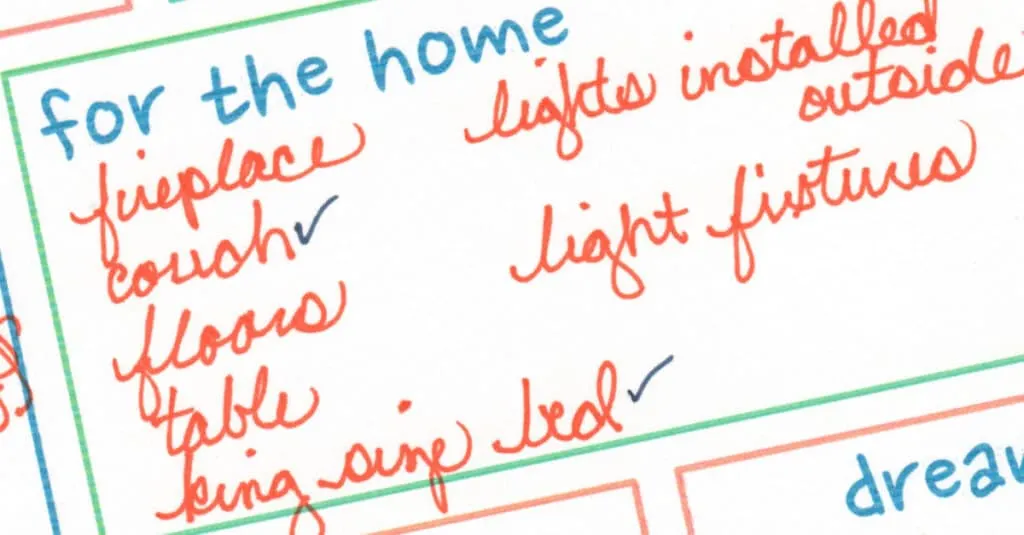 for the home
fireplace
couch✓
floors
table
king size bed✓
lights installed
outside
light fixtures